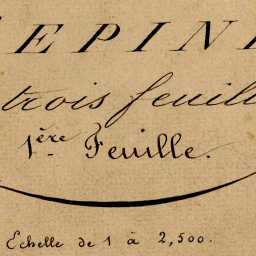 EPIN
trois feuill
1ère Feuille.
Echelle de 1 à 2,500.